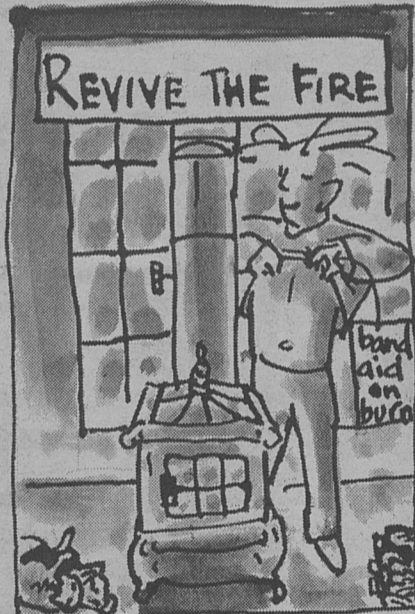 REVIVE THE FIRE
band
aid
on
burn